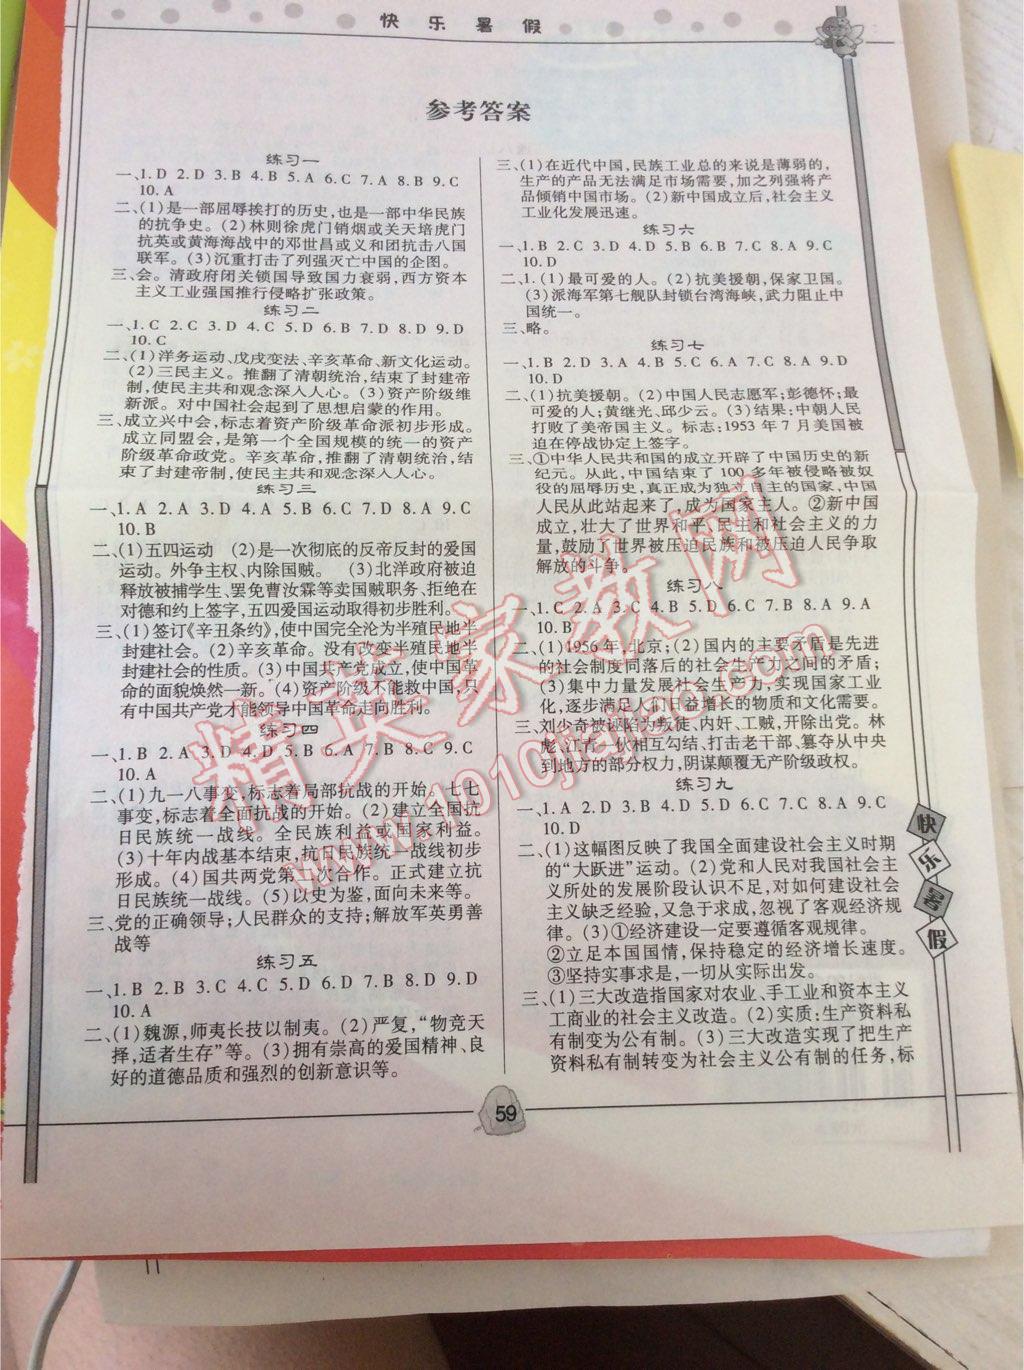 快乐暑假
参考答案
练习一
一、1. D  2. D  3. B  4. B  5. A  6. C  7. A  8. B  9. C
10. A
二、(1)是一部屈辱挨打的历史,也是一部中华民族
的抗争史。(2)林则徐虎门销烟或关天培虎门
抗英或黄海海战中的邓世昌或义和团抗击八国
联军。(3)沉重打击了列强灭亡中国的企图。
三、会。清政府闭关锁国导致国力衰弱,西方资本
主义工业强国推行侵略扩张政策。
练习二
一、1. C  2. C  3. D  4. C  5. D  6. B  7. D  8. D  9. D
10. C
二、(1)洋务运动、戊戌变法、辛亥革命、新文化运动。
(2)三民主义。推翻了清朝统治,结束了封建帝
制,使民主共和观念深入人心。(3)资产阶级维
新派。对中国社会起到了思想启蒙的作用。
三、成立兴中会,标志着资产阶级革命派初步形成。
成立同盟会,是第一个全国规模的统一的资产
阶级革命政党。辛亥革命,推翻了清朝统治,结
束了封建帝制,使民主共和观念深入人心。
练习三
一、1. A  2. A  3. D  4. C  5. D  6. C  7. D  8. A  9. C
10. B
二、(1)五四运动  (2)是一次彻底的反帝反封的爱国
运动。外争主权、内除国贼。  (3)北洋政府被迫
释放被捕学生、罢免曹汝霖等卖国贼职务、拒绝在
对德和约上签字,五四爱国运动取得初步胜利。
三、(1)签订《辛丑条约》,使中国完全沦为半殖民地半
封建社会。(2)辛亥革命。没有改变半殖民地半
封建社会的性质。(3)中国共产党成立,使中国革
命的面貌焕然一新。(4)资产阶级不能救中国,只
有中国共产党才能领导中国革命走向胜利。
练习四
一、1. B  2. A  3. D  4. D  5. B  6. A  7. B  8. D  9. C
10. A
二、(1)九一八事变,标志着局部抗战的开始。七七
事变,标志着全面抗战的开始。(2)建立全国抗
日民族统一战线。全民族利益或国家利益。
(3)十年内战基本结束,抗日民族统一战线初步
形成。(4)国共两党第二次合作。正式建立抗
日民族统一战线。(5)以史为鉴,面向未来等。
三、党的正确领导;人民群众的支持;解放军英勇善
战等
练习五
一、1. B  2. B  3. C  4. C  5. D  6. D  7. D  8. D  9. D
10. A
二、(1)魏源,师夷长技以制夷。(2)严复,“物竞天
择,适者生存”等。(3)拥有崇高的爱国精神、良
好的道德品质和强烈的创新意识等。
三、(1)在近代中国,民族工业总的来说是薄弱的,
生产的产品无法满足市场需要,加之列强将产
品倾销中国市场。(2)新中国成立后,社会主义
工业化发展迅速。
练习六
一、1. B  2. C  3. D  4. D  5. B  6. B  7. C  8. A  9. C
10. D
二、1.(1)最可爱的人。(2)抗美援朝,保家卫国。
(3)派海军第七舰队封锁台湾海峡,武力阻止中
国统一。
三、略。
练习七
一、1. B  2. D  3. A  4. B  5. C  6. A  7. D  8. A  9. D
10. D
二、(1)抗美援朝。(2)中国人民志愿军;彭德怀;最
可爱的人;黄继光、邱少云。(3)结果:中朝人民
打败了美帝国主义。标志:1953年7月美国被
迫在停战协定上签字。
三、①中华人民共和国的成立开辟了中国历史的新
纪元。从此,中国结束了100多年被侵略被奴
役的屈辱历史,真正成为独立自主的国家,中国
人民从此站起来了,成为国家主人。②新中国
成立,壮大了世界和平、民主和社会主义的力
量,鼓励了世界被压迫民族和被压迫人民争取
解放的斗争。
练习八
一、1. C  2. A  3. C  4. D  5. D  6. C  7. B  8. A  9. A
10. B
二、(1)1956年,北京;(2)国内的主要矛盾是先进
的社会制度同落后的社会生产力之间的矛盾;
(3)集中力量发展社会生产力,实现国家工业
化,逐步满足人们日益增长的物质和文化需要。
三、刘少奇被诬陷为叛徒、内奸、工贼,开除出党。林
彪、江青一伙相互勾结、打击老干部、篡夺从中央
到地方的部分权力,阴谋颠覆无产阶级政权。
练习九
一、1. A  2. D  3. B  4. D  5. D  6. C  7. C  8. A  9. C
10. D
二、(1)这幅图反映了我国全面建设社会主义时期
的“大跃进”运动。(2)党和人民对我国社会主
义所处的发展阶段认识不足,对如何建设社会
主义缺乏经验,又急于求成,忽视了客观经济规
律。(3)①经济建设一定要遵循客观规律。
②立足本国国情,保持稳定的经济增长速度。
③坚持实事求是,一切从实际出发。
三、(1)三大改造指国家对农业、手工业和资本主义
工商业的社会主义改造。(2)实质:生产资料私
有制变为公有制。(3)三大改造实现了把生产
资料私有制转变为社会主义公有制的任务,标
快乐暑假
59
精英家教网
www.1010jiajiao.com